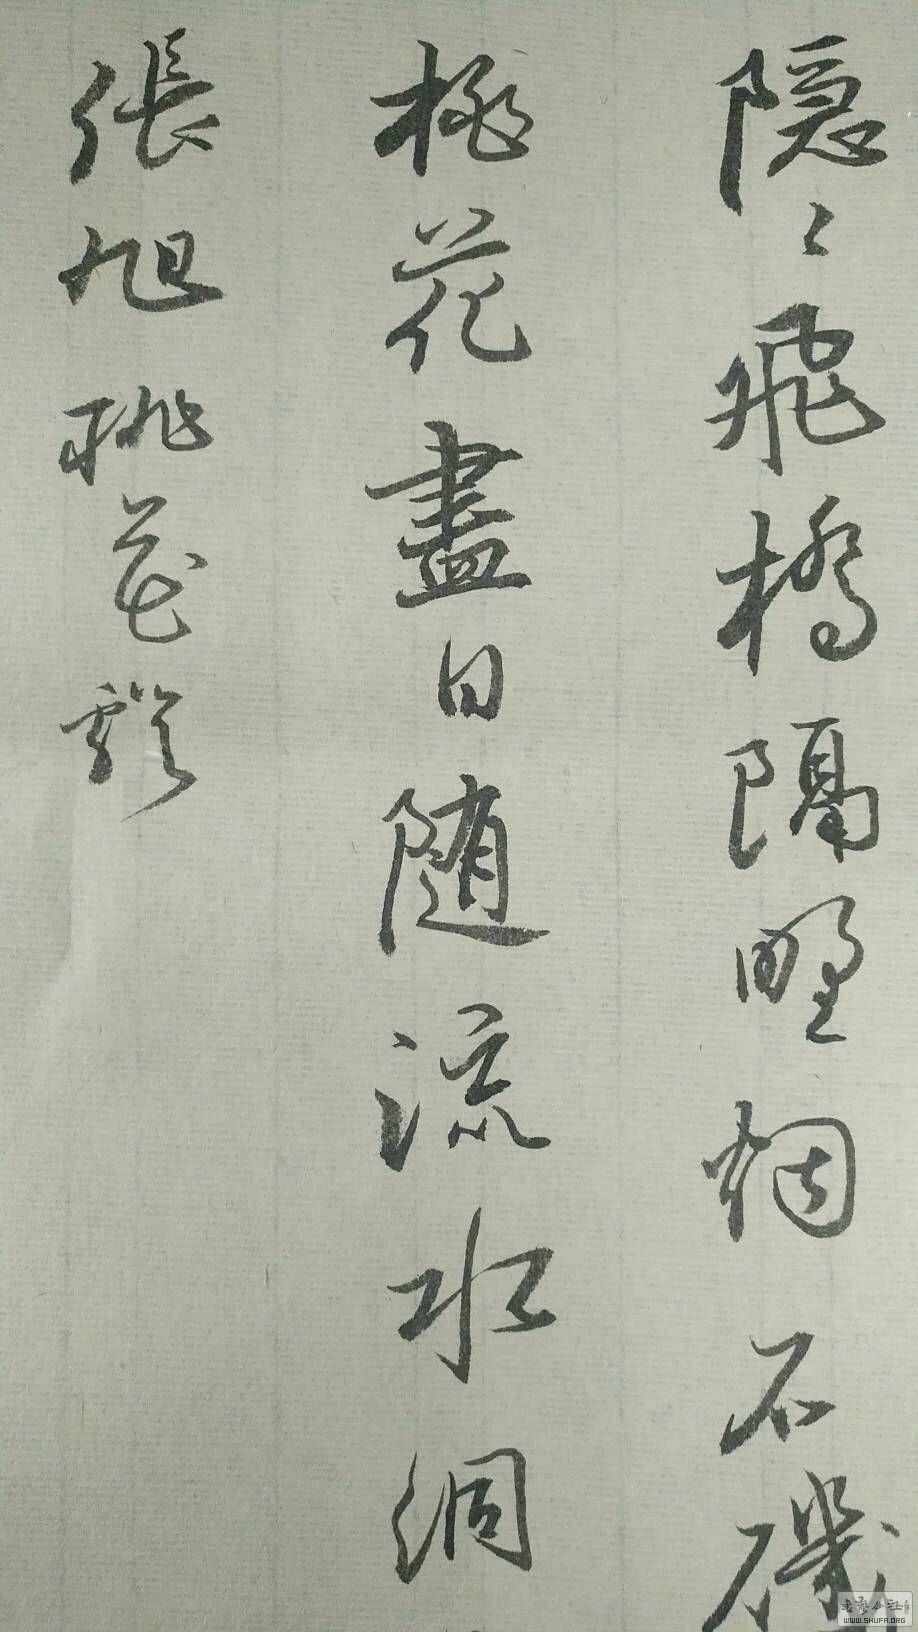 隐〻飛橋隔野烟石磯
桃花盡日随流水洞
張旭桃花谿
書藝公社
WWW.SHUFA.ORG